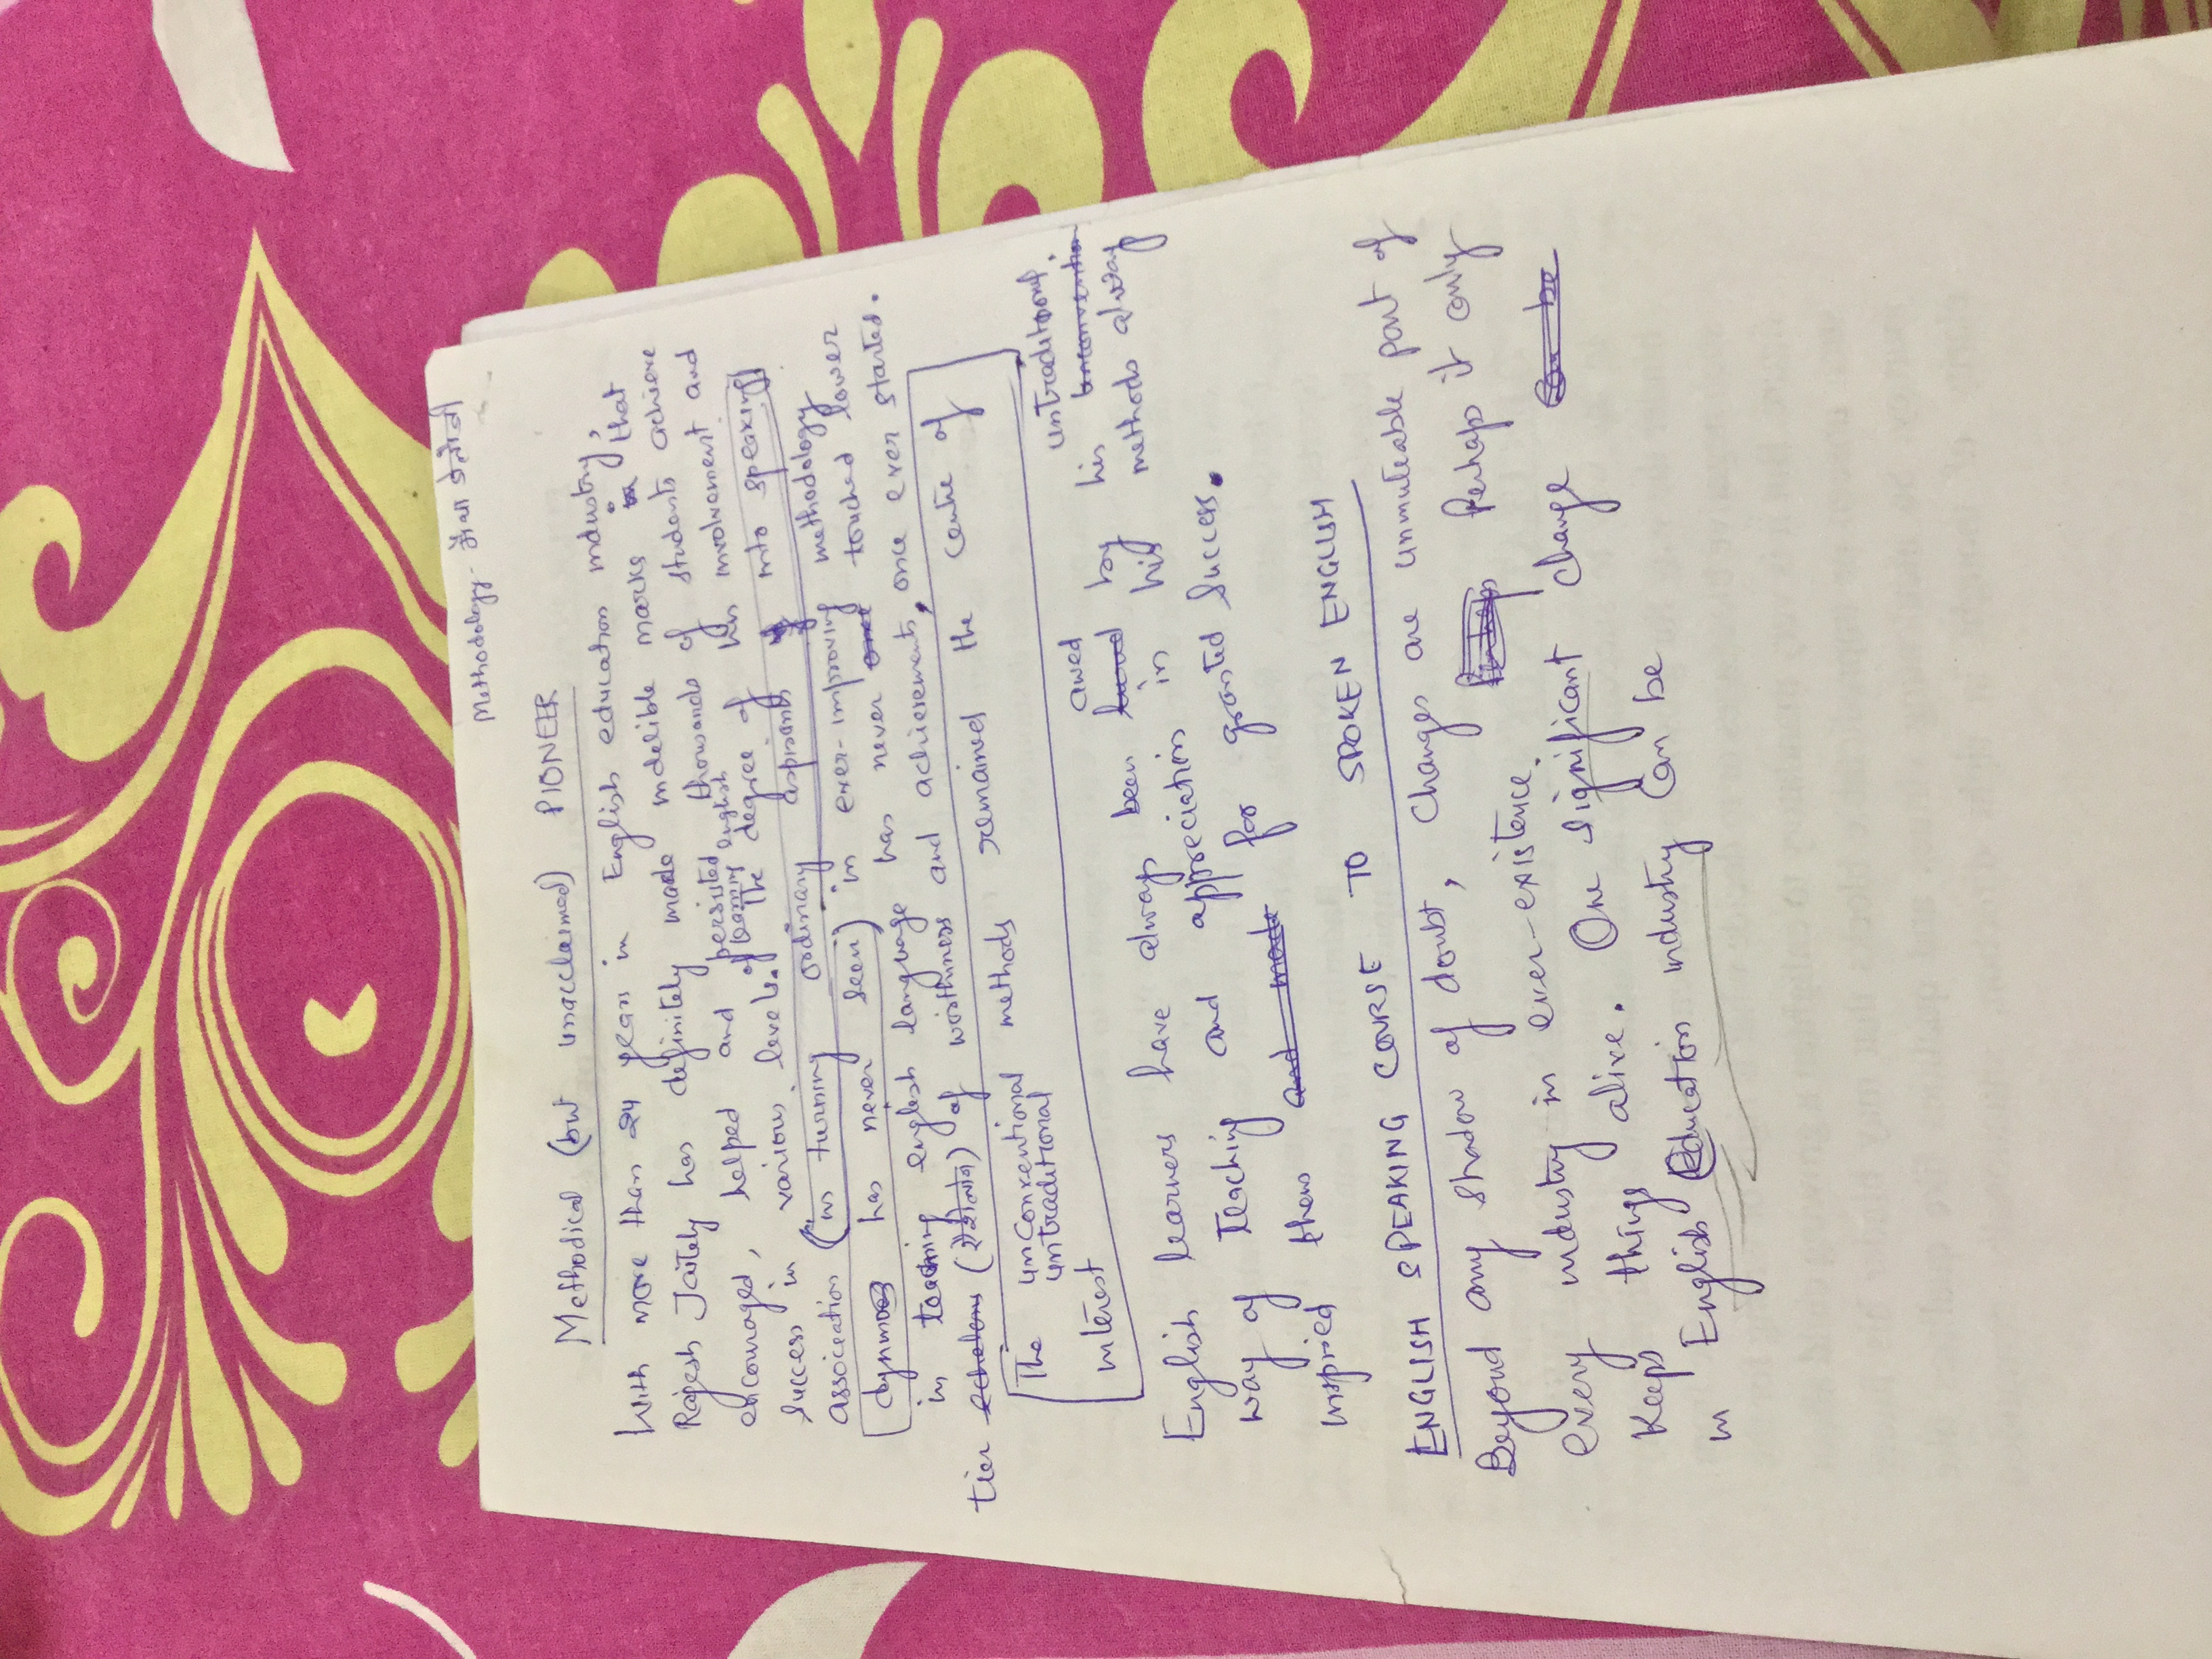 Methodology - मैथा डेलौजी
Methodical (but unacclaimed) PIONEER
With more than 24 years in English education industry,
Rajesh Jaitely has definitely made indelible marks that
encouraged, helped and persisted thousands of students achieve
of learning english
success in various levels. The degree of his involvement and
association (in turning ordinary aspirants into speaking
has never seen) in ever-improving methodology
in teaching english language has never once touched lower
tier echelons of worthiness and achievements, once ever started.
The unconventional methods remained the centre of
untraditional
interest
awed untraditional
English learners have always been lured by his unconvention
way of teaching and appreciation in his methods alway
inspried them and made for granted success.
ENGLISH SPEAKING COURSE TO SPOKEN ENGLISH
Beyond any shadow of doubt, Changes are unmuteable part of
every industry in ever-existence. Perhaps Perhaps it only
keeps things alive. One significant change can be
in English Education industry can be